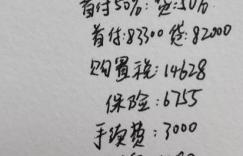 首付50%:贷:50%
首付:83300 贷:82000
购置税:14628
保险:6755
手续费:3000